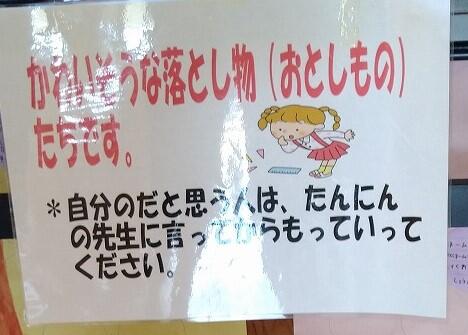 かわいそうな落とし物（おとしもの）
たちです。
＊自分のだと思う人は、たんにん
の先生に言ってからもっていって
ください。